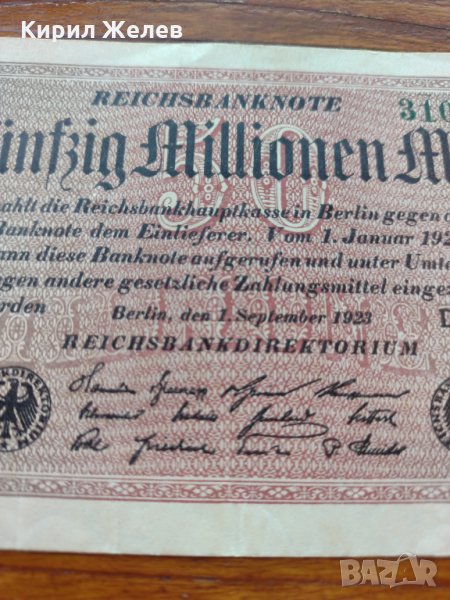 Кирил Желев
REICHSBANKNOTE 310
50
ünfzig Millionen M
ahlt die Reichsbankhauptkasse in Berlin gegen d
Banknote dem Einlieferer. Vom 1. Januar 192
ann diese Banknote aufgerufen und unter Umta
gen andere gesetzliche Zahlungsmittel eingez
rden
Berlin, den 1. September 1923
REICHSBANKDIREKTORIUM
BAZAR